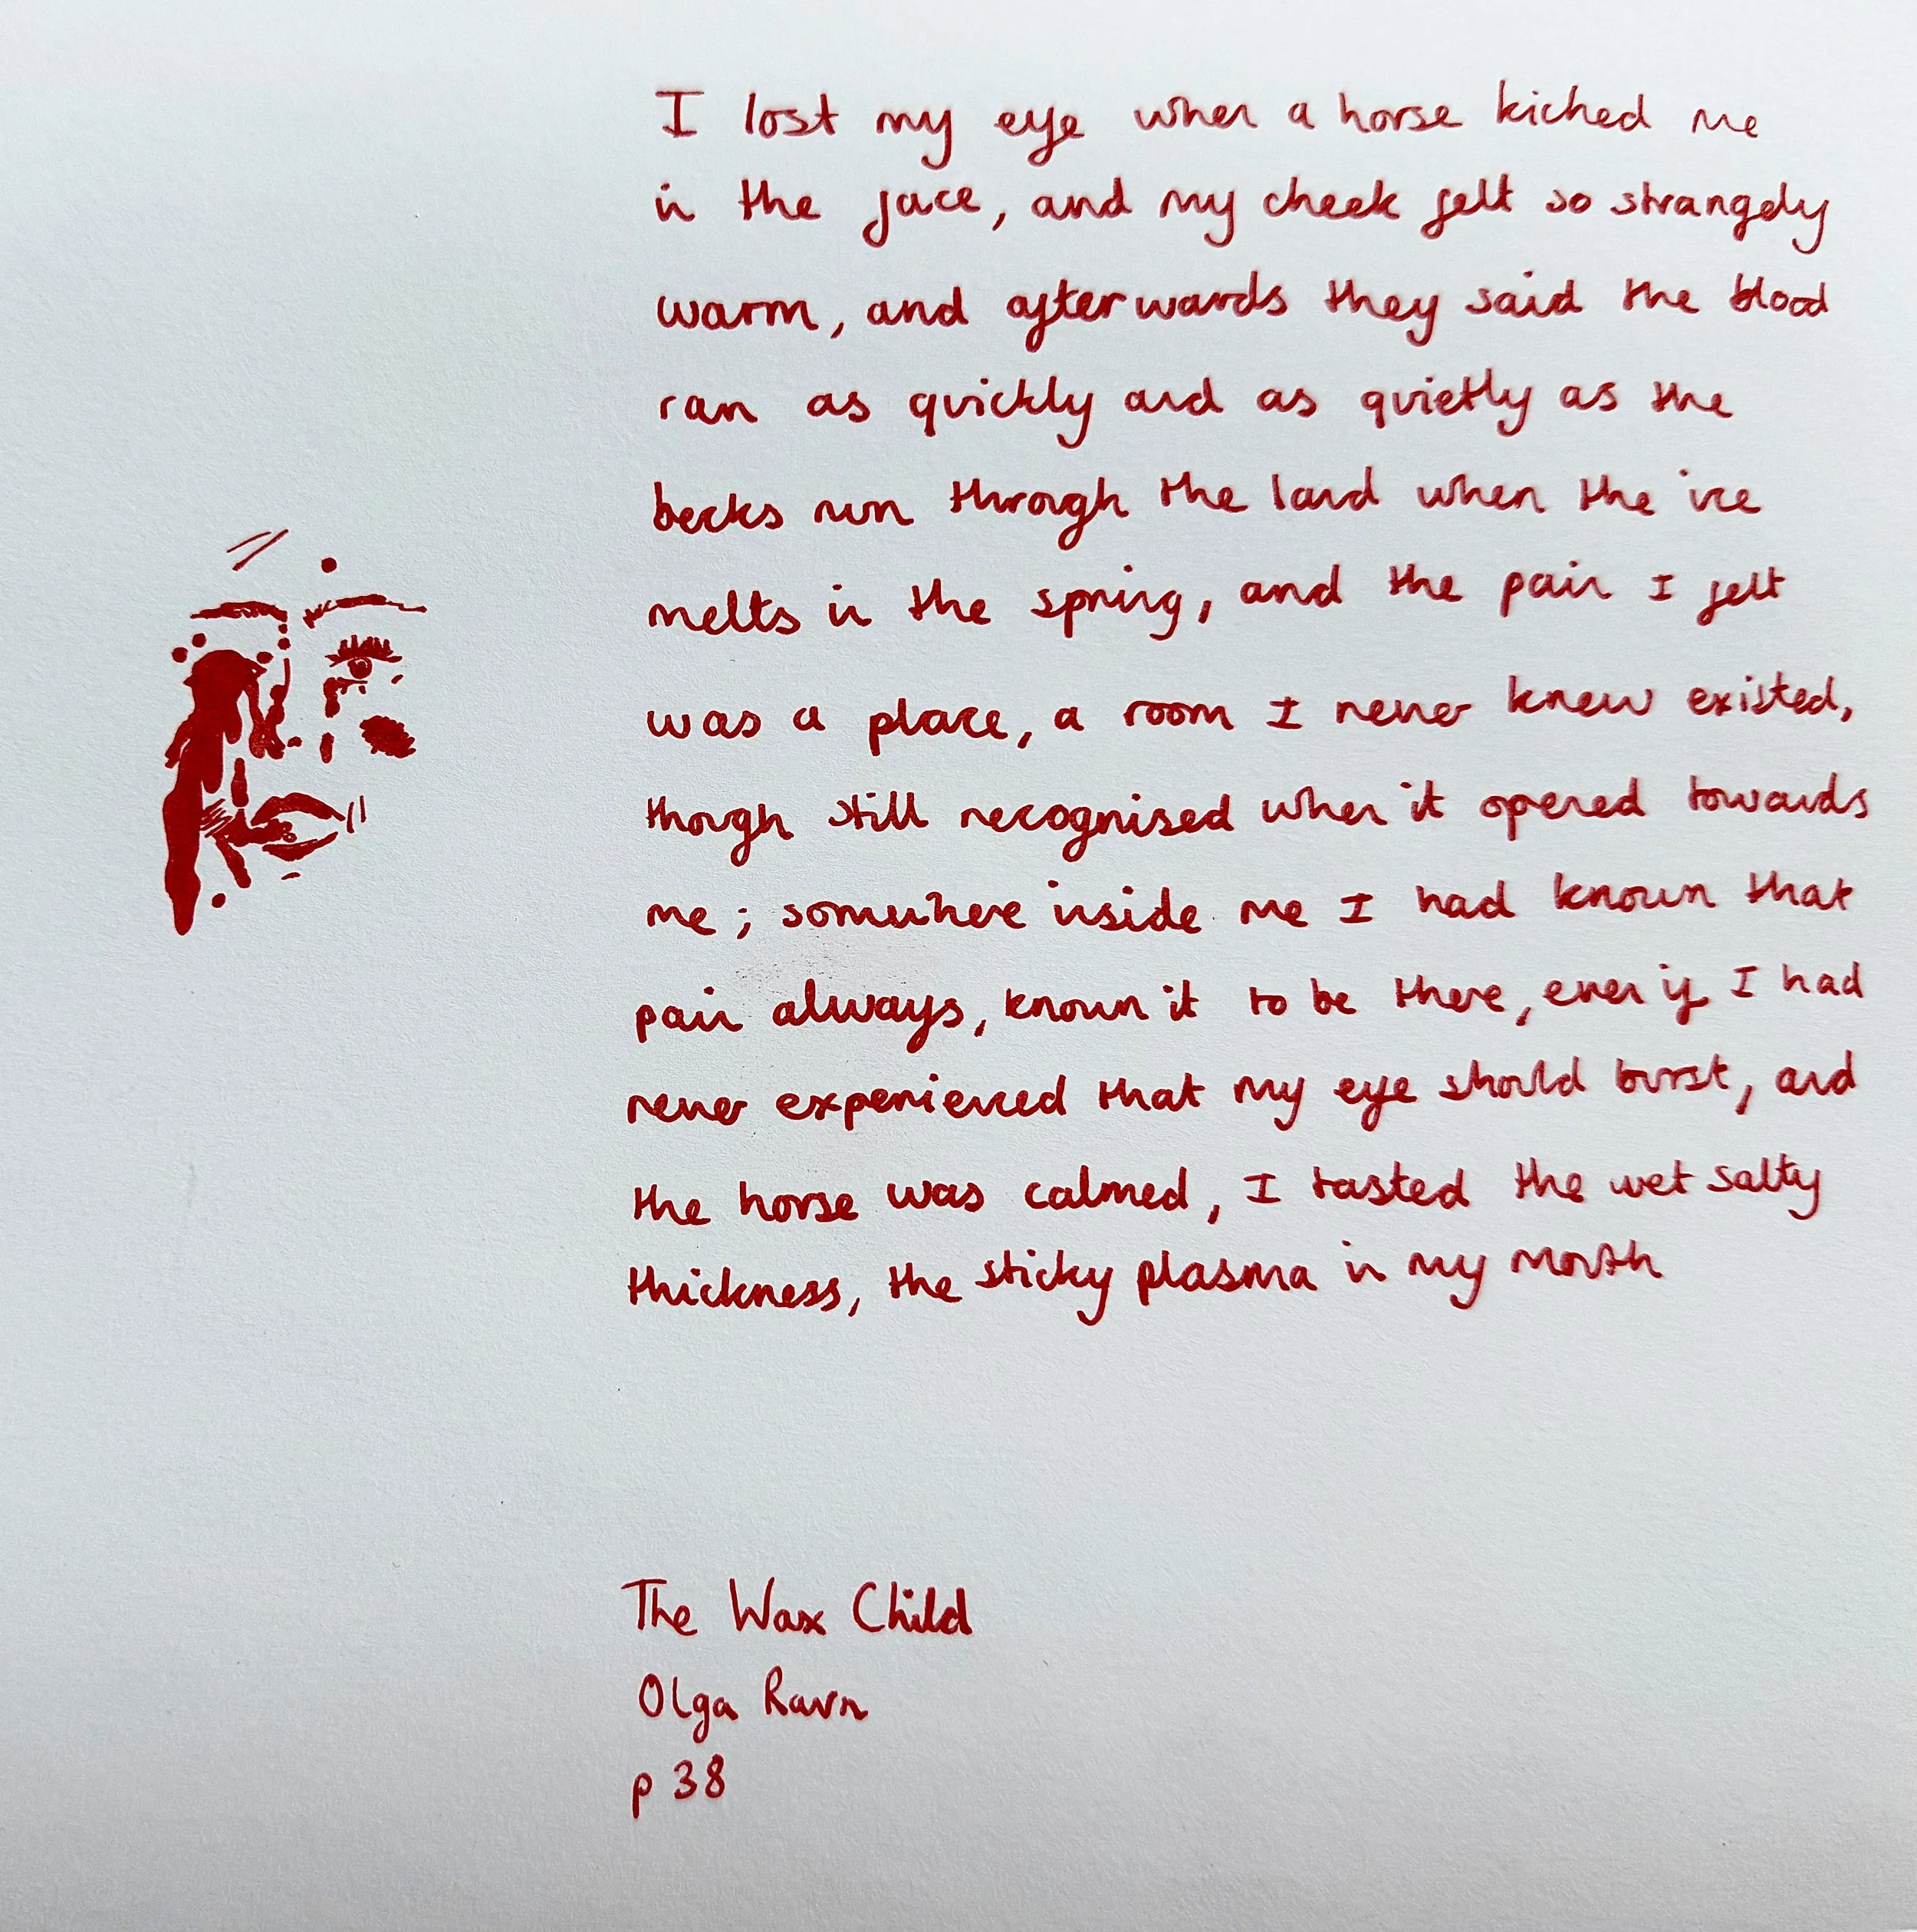 I lost my eye when a horse kicked me
in the face, and my cheek felt so strangely
warm, and afterwards they said the blood
ran as quickly and as quietly as the
becks run through the land when the ice
melts in the spring, and the pain I felt
was a place, a room I never knew existed,
though still recognised when it opened towards
me; somewhere inside me I had known that
pain always, known it to be there, even if I had
never experienced that my eye should burst, and
the horse was calmed, I tasted the wet salty
thickness, the sticky plasma in my mouth
The Wax Child
Olga Ravn
p 38